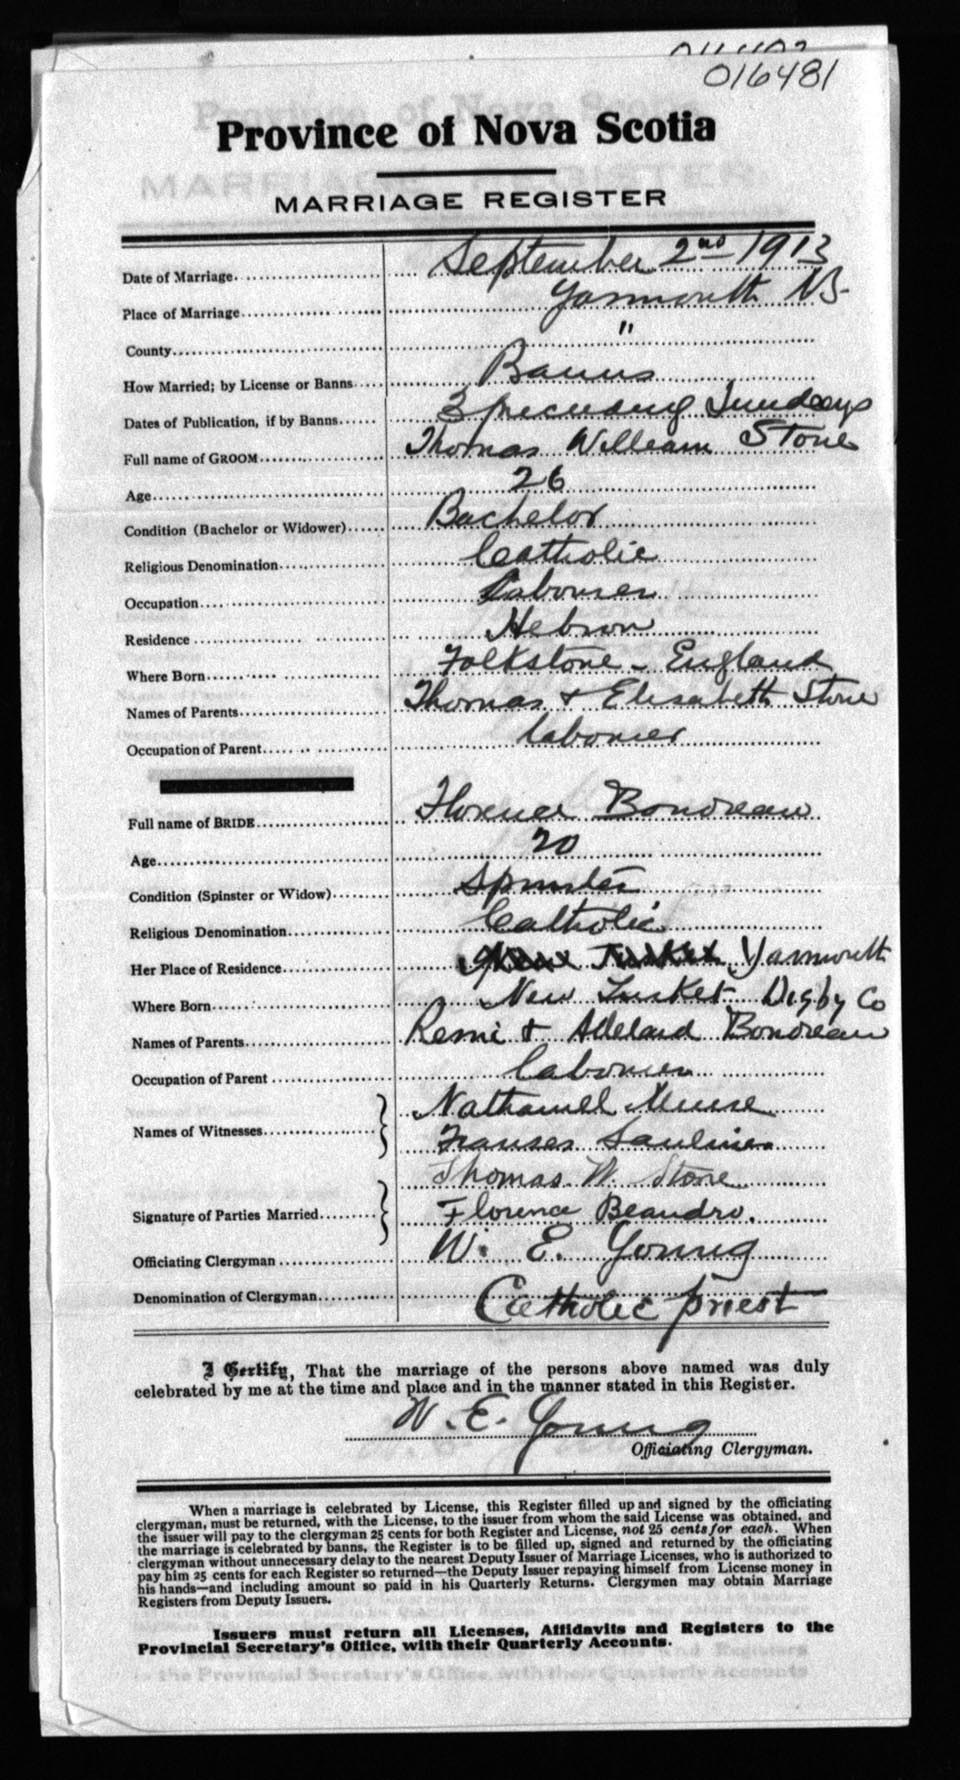 016481
Province of Nova Scotia
MARRIAGE REGISTER
Date of Marriage September 2nd 1913
Place of Marriage Yarmouth NS
County "
How Married; by License or Banns Banns
Dates of Publication, if by Banns 3 preceding Sundays
Full name of GROOM Thomas William Stone
Age 26
Condition (Bachelor or Widower) Bachelor
Religious Denomination Catholic
Occupation Labourer
Residence Hebron
Where Born Folkstone - England
Names of Parents Thomas & Elisabeth Stone
Occupation of Parent labourer
Full name of BRIDE Florence Boudreau
Age 20
Condition (Spinster or Widow) Spinster
Religious Denomination Catholic
Her Place of Residence New Tusket Yarmouth
Where Born New Tusket Digby Co
Names of Parents Remi & Adelaid Boudreau
Occupation of Parent labourer
Names of Witnesses Nathaniel Muise
Franses Saulnier
Thomas W. Stone
Signature of Parties Married Florence Beaudro.
Officiating Clergyman W. E. Young
Denomination of Clergyman Catholic priest
I Certify, That the marriage of the persons above named was duly
celebrated by me at the time and place and in the manner stated in this Register.
W. E. Young
Officiating Clergyman.
When a marriage is celebrated by License, this Register filled up and signed by the officiating
clergyman, must be returned, with the License, to the issuer from whom the said License was obtained, and
the issuer will pay to the clergyman 25 cents for both Register and License, not 25 cents for each. When
the marriage is celebrated by banns, the Register is to be filled up, signed and returned by the officiating
clergyman without unnecessary delay to the nearest Deputy Issuer of Marriage Licenses, who is authorized to
pay him 25 cents for each Register so returned—the Deputy Issuer repaying himself from License money in
his hands—and including amount so paid in his Quarterly Returns. Clergymen may obtain Marriage
Registers from Deputy Issuers.
Issuers must return all Licenses, Affidavits and Registers to the
Provincial Secretary's Office, with their Quarterly Accounts.